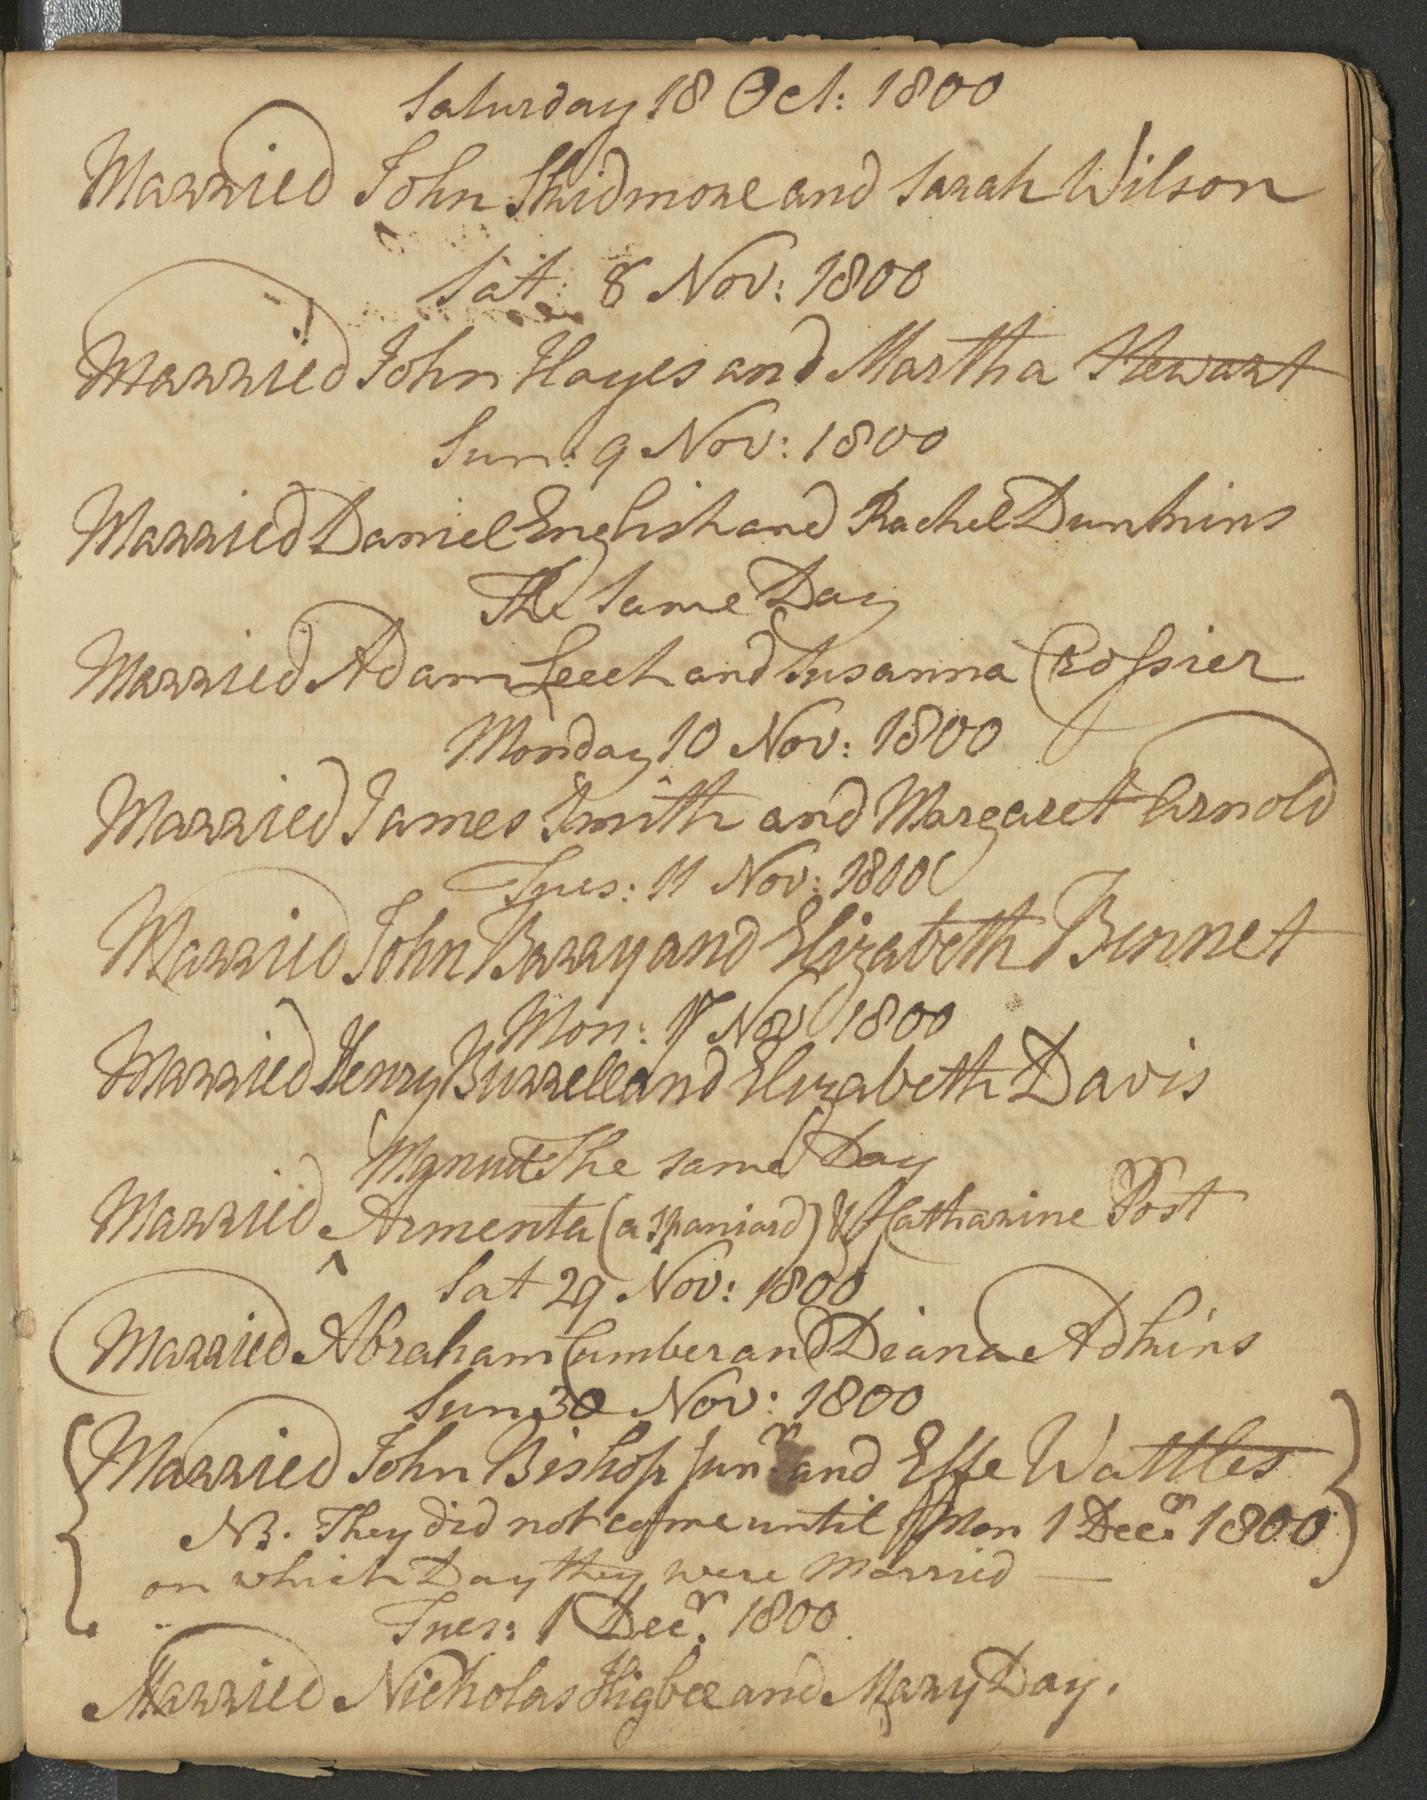 Saturday 18 Oct: 1800
Married John Skidmore and Sarah Wilson
Sat: 8 Nov: 1800
Married John Hayes and Martha Stewart
Sun: 9 Nov: 1800
Married Daniel English and Rachel Dunkins
The Same Day
Married Adam Leech and Susanna Crossier
Monday 10 Nov: 1800
Married James Smith and Margaret Arnold
Tues: 11 Nov: 1800
Married John Barry and Elizabeth Bennet
Mon: 17 Nov 1800
Married Henry Burrell and Elizabeth Davis
The same Day
Married Armenta (a Spaniard) & Catharine Post
Sat 29 Nov: 1800
Married Abraham Camber and Diana Adkins
Sun 30 Nov: 1800
Married John Bishop Junr and Effe Wattles
NB. They did not come until Mon 1 Decr 1800
on which Day they were Married —
Tues: 1 Decr. 1800
Married Nicholas Higbee and Mary Day.